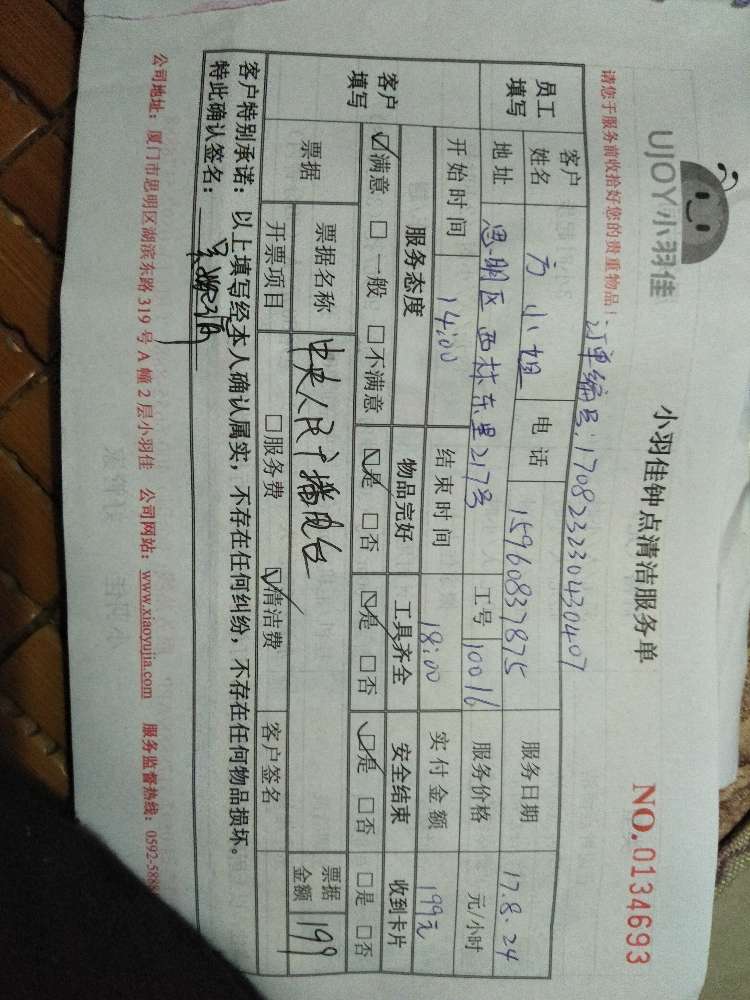 UJOY小羽佳
小羽佳钟点清洁服务单
NO. 0134693
请您于服务前收拾好您的贵重物品！
订单编号：17082323043 0407
员工填写
客户姓名 方小姐 电话 15960837875 服务日期 17.8.24
地址 思明区西林东里217号 工号 10016 服务价格 元/小时
开始时间 14:00 结束时间 18:00 实付金额 199元
客户填写
服务态度 物品完好 工具齐全 安全结束 收到卡片
☑满意 □一般 □不满意 ☑是 □否 ☑是 □否 ☑是 □否 □是 □否
票据 票据名称 中央人民广播电台 票据金额 199
开票项目 □服务费 ☑清洁费 客户签名
客户特别承诺：以上填写经本人确认属实，不存在任何纠纷，不存在任何物品损坏。
特此确认签名：
公司地址：厦门市思明区湖滨东路319号A幢2层小羽佳 公司网站：www.xiaoyujia.com 服务监督热线：0592-5888